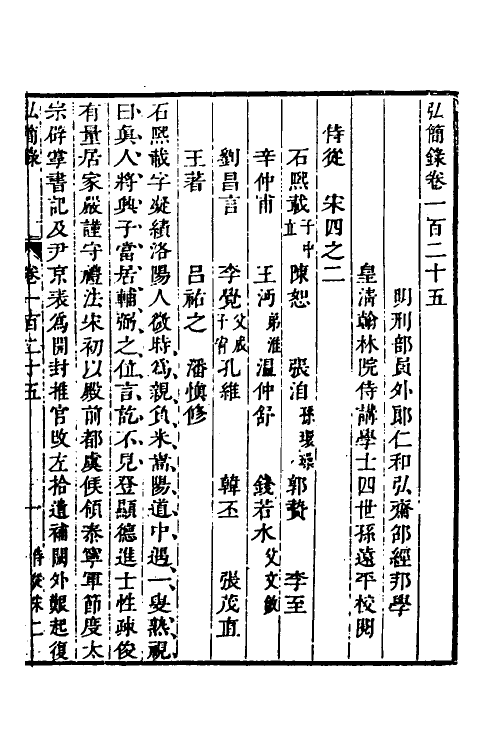 弘簡錄卷一百二十五
明刑部員外郎仁和弘齋邵經邦學
皇清翰林院侍講學士四世孫遠平校閱
侍從　宋四之二
石熙載子中立　陳恕　張洎孫瓌璪　郭贄　李至
辛仲甫　王沔弟淮　溫仲舒　錢若水父文敏
劉昌言　李覺父成子宥　孔維　韓丕　張茂直
王著　呂祐之　潘慎修
石熙載字凝績洛陽人微時爲親負米嵩陽道中遇一叟熟視
曰眞人將興子當居輔弼之位言訖不見登顯德進士性疎俊
有量居家嚴謹守禮法宋初以殿前都虞侯領泰寧軍節度太
宗辟掌書記及尹京表爲開封推官改左拾遺補闕外艱起復
弘簡錄　卷一百二十五　一　侍從宋二